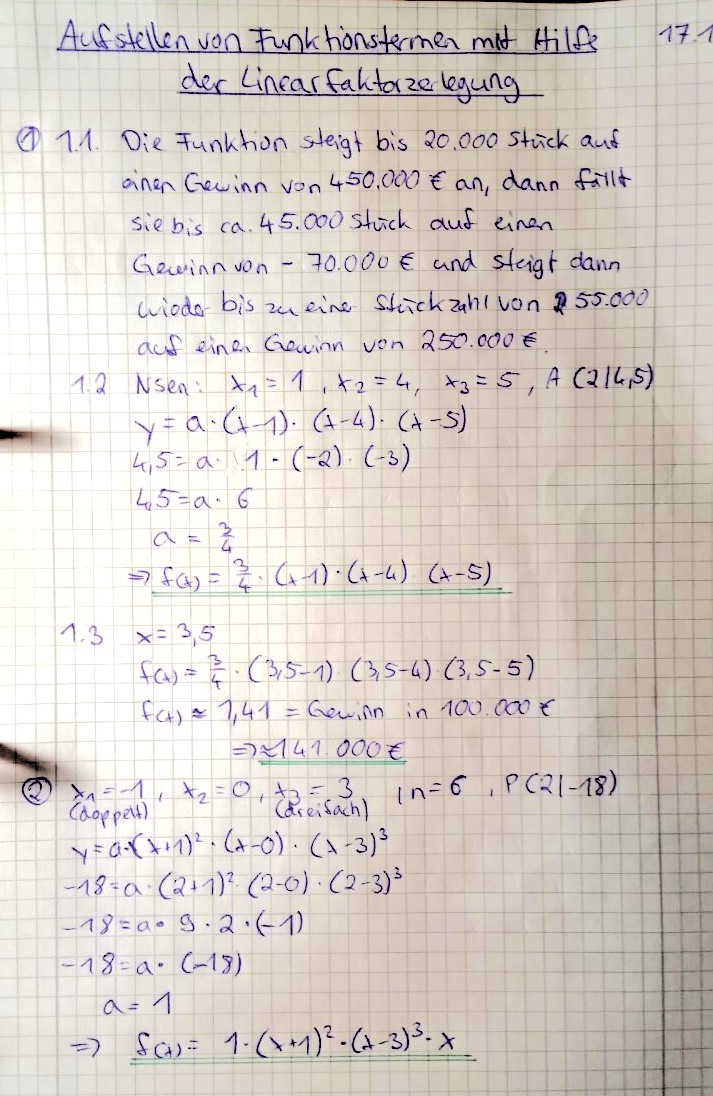 Aufstellen von Funktionstermen mit Hilfe 17.1
der Linearfaktorzerlegung
① 1.1. Die Funktion steigt bis 20.000 Stück auf
einen Gewinn von 450.000 € an, dann fällt
sie bis ca. 45.000 Stück auf einen
Gewinn von - 70.000 € und steigt dann
wieder bis zu einer Stückzahl von 55.000
auf einen Gewinn von 250.000 €.
1.2 Nsen: x₁ = 1, x₂ = 4, x₃ = 5, A (2|4,5)
y = a · (x-1) · (x-4) · (x-5)
4,5 = a · 1 · (-2) · (-3)
4,5 = a · 6
a = 3/4
⇒ f(x) = 3/4 · (x-1) · (x-4) (x-5)
1.3 x = 3,5
f(x) = 3/4 · (3,5-1) · (3,5-4) · (3,5-5)
f(x) ≈ 1,41 = Gewinn in 100.000 €
⇒ ≈ 141.000 €
② x₁ = -1, x₂ = 0, x₃ = 3 | n = 6, P(2|-18)
(doppelt) (dreifach)
y = a · (x+1)² · (x-0) · (x-3)³
-18 = a · (2+1)² · (2-0) · (2-3)³
-18 = a · 9 · 2 · (-1)
-18 = a · (-18)
a = 1
⇒ f(x) = 1 · (x+1)² · (x-3)³ · x